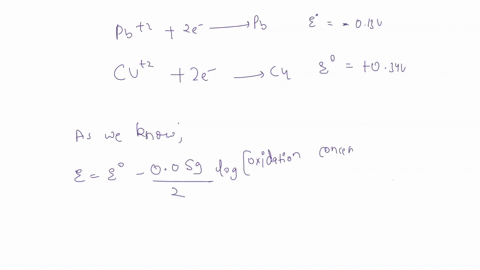 Pb⁺² + 2e⁻ ⟶ Pb ε° = - 0.13V
Cu⁺² + 2e⁻ ⟶ Cu ε⁰ = +0.34V
As we know;
ε = ε⁰ - 0.059/2 log [oxidation concen